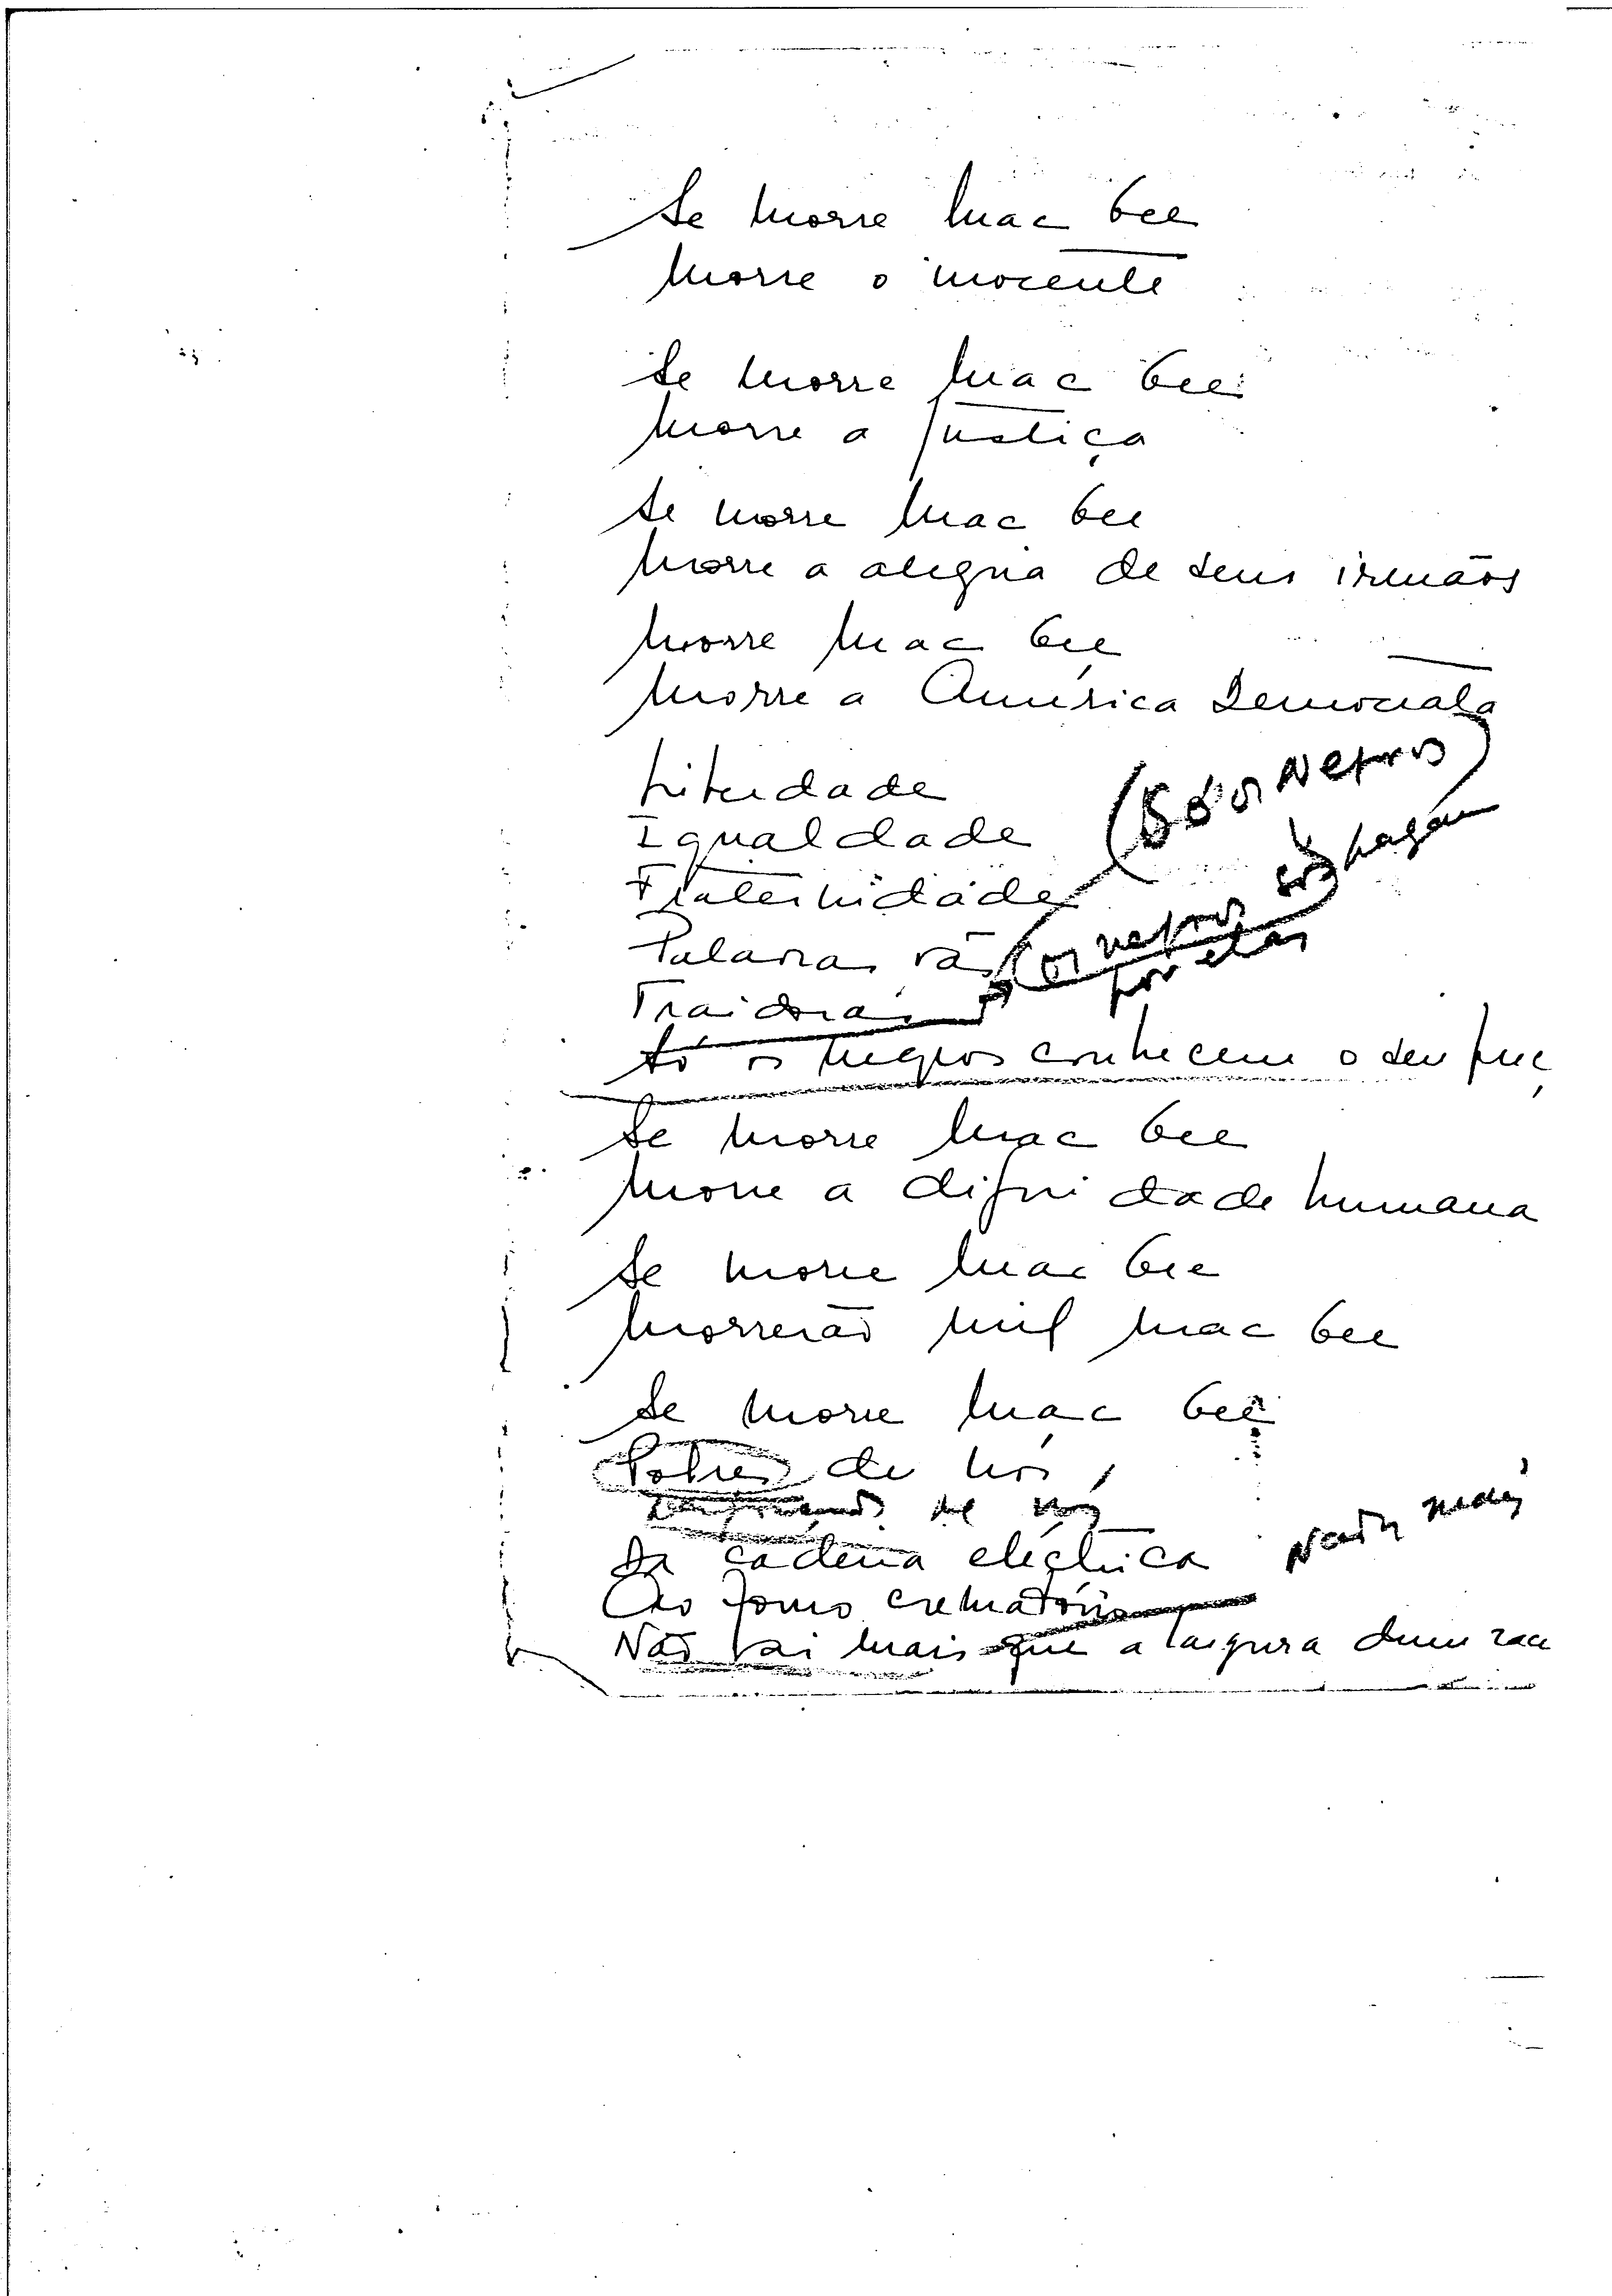 Se morre Mac Gee
Morre o inocente
Se morre Mac Gee
Morre a Justiça
Se morre Mac Gee
Morre a alegria de seus irmãos
Morre Mac Gee
Morre a América Democrata
Liberdade
(Só os Negros)
Igualdade
Fraternidade
Palavras vãs (os negros só pagam
por elas
Traidoras
Só os negros conhecem o seu preç
Se morre Mac Gee
Morre a dignidade humana
Se morre Mac Gee
Morrerão mil Mac Gee
Se morre Mac Gee
Pobres de nós,
de nós
Da cadeira eléctrica
Nada mais
Ao forno crematório
Não vai mais que a largura dum